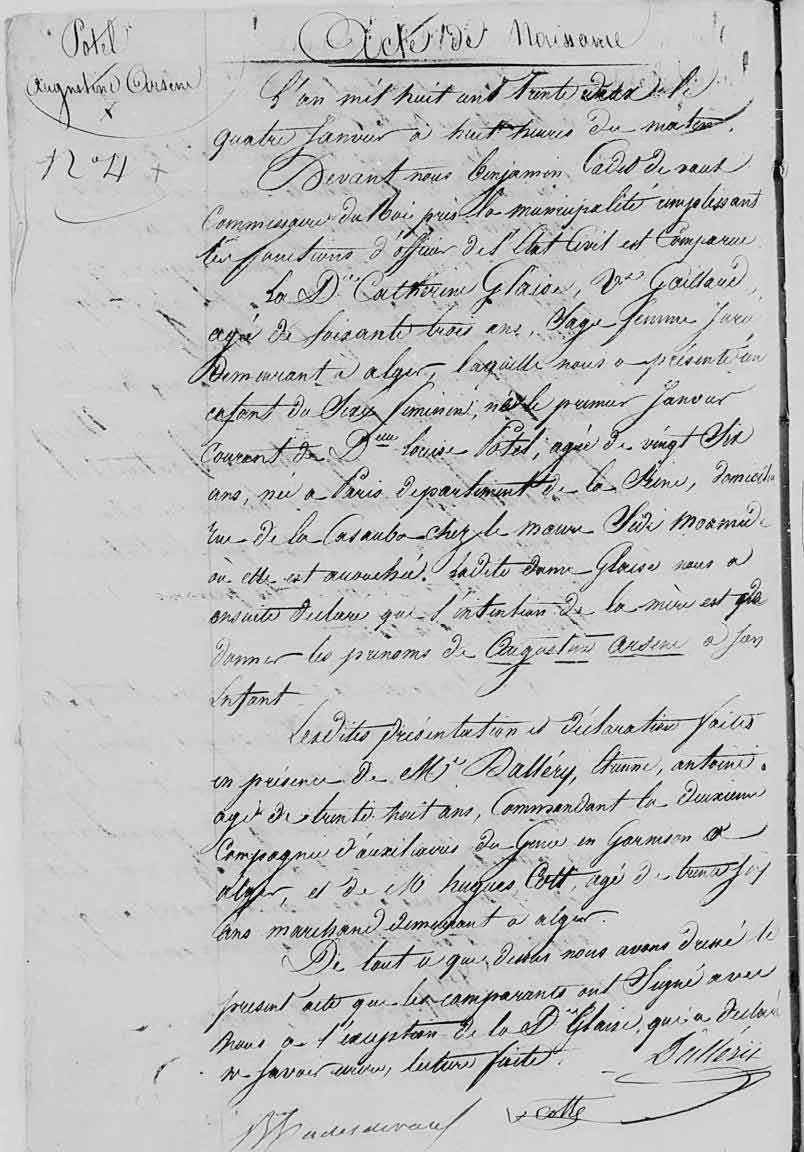 Potel
Augustine Arsene
N° 4
Acte de Naissance
L'an mil huit cent trente deux le
quatre Janvier à huit heures du matin.
Devant nous Benjamin Cadet de vaux
Commissaire du Roi près la municipalité remplissant
les fonctions d'officier de l'Etat Civil est comparue
La De Catherine Glaise, Ve Gaillaud,
agée de soixante trois ans, Sage femme Juré
Demeurant à alger, laquelle nous a présenté un
enfant du Sexe feminin, né le premier Janvier
Courant de Delle Louise Potel, agée de vingt Six
ans, née à Paris departement de la Seine, domiciliée
rue de la Casauba chez le maure Sidi
où elle est accouchée. Ladite dame Glaise nous a
ensuite déclaré que l'intention de la mère est de
donner les prenoms de Augustine Arsene à son
Enfant
Lesdites présentation et déclaration faites
en présence de Mr Dalléry, Etienne, antoine,
agé de trente huit ans, Commandant la deuxieme
Compagnie d'auxiliaires du Genie en Garnison à
alger, et de M hugues Cott, agé de trente six
ans marchand demeurant à alger.
De tout ce que dessus nous avons dressé le
présent acte que les comparants ont Signé avec
nous à l'exception de la De Glaise, qui a déclaré
ne savoir ecrire, lecture faite.
Dallérie
Cotte